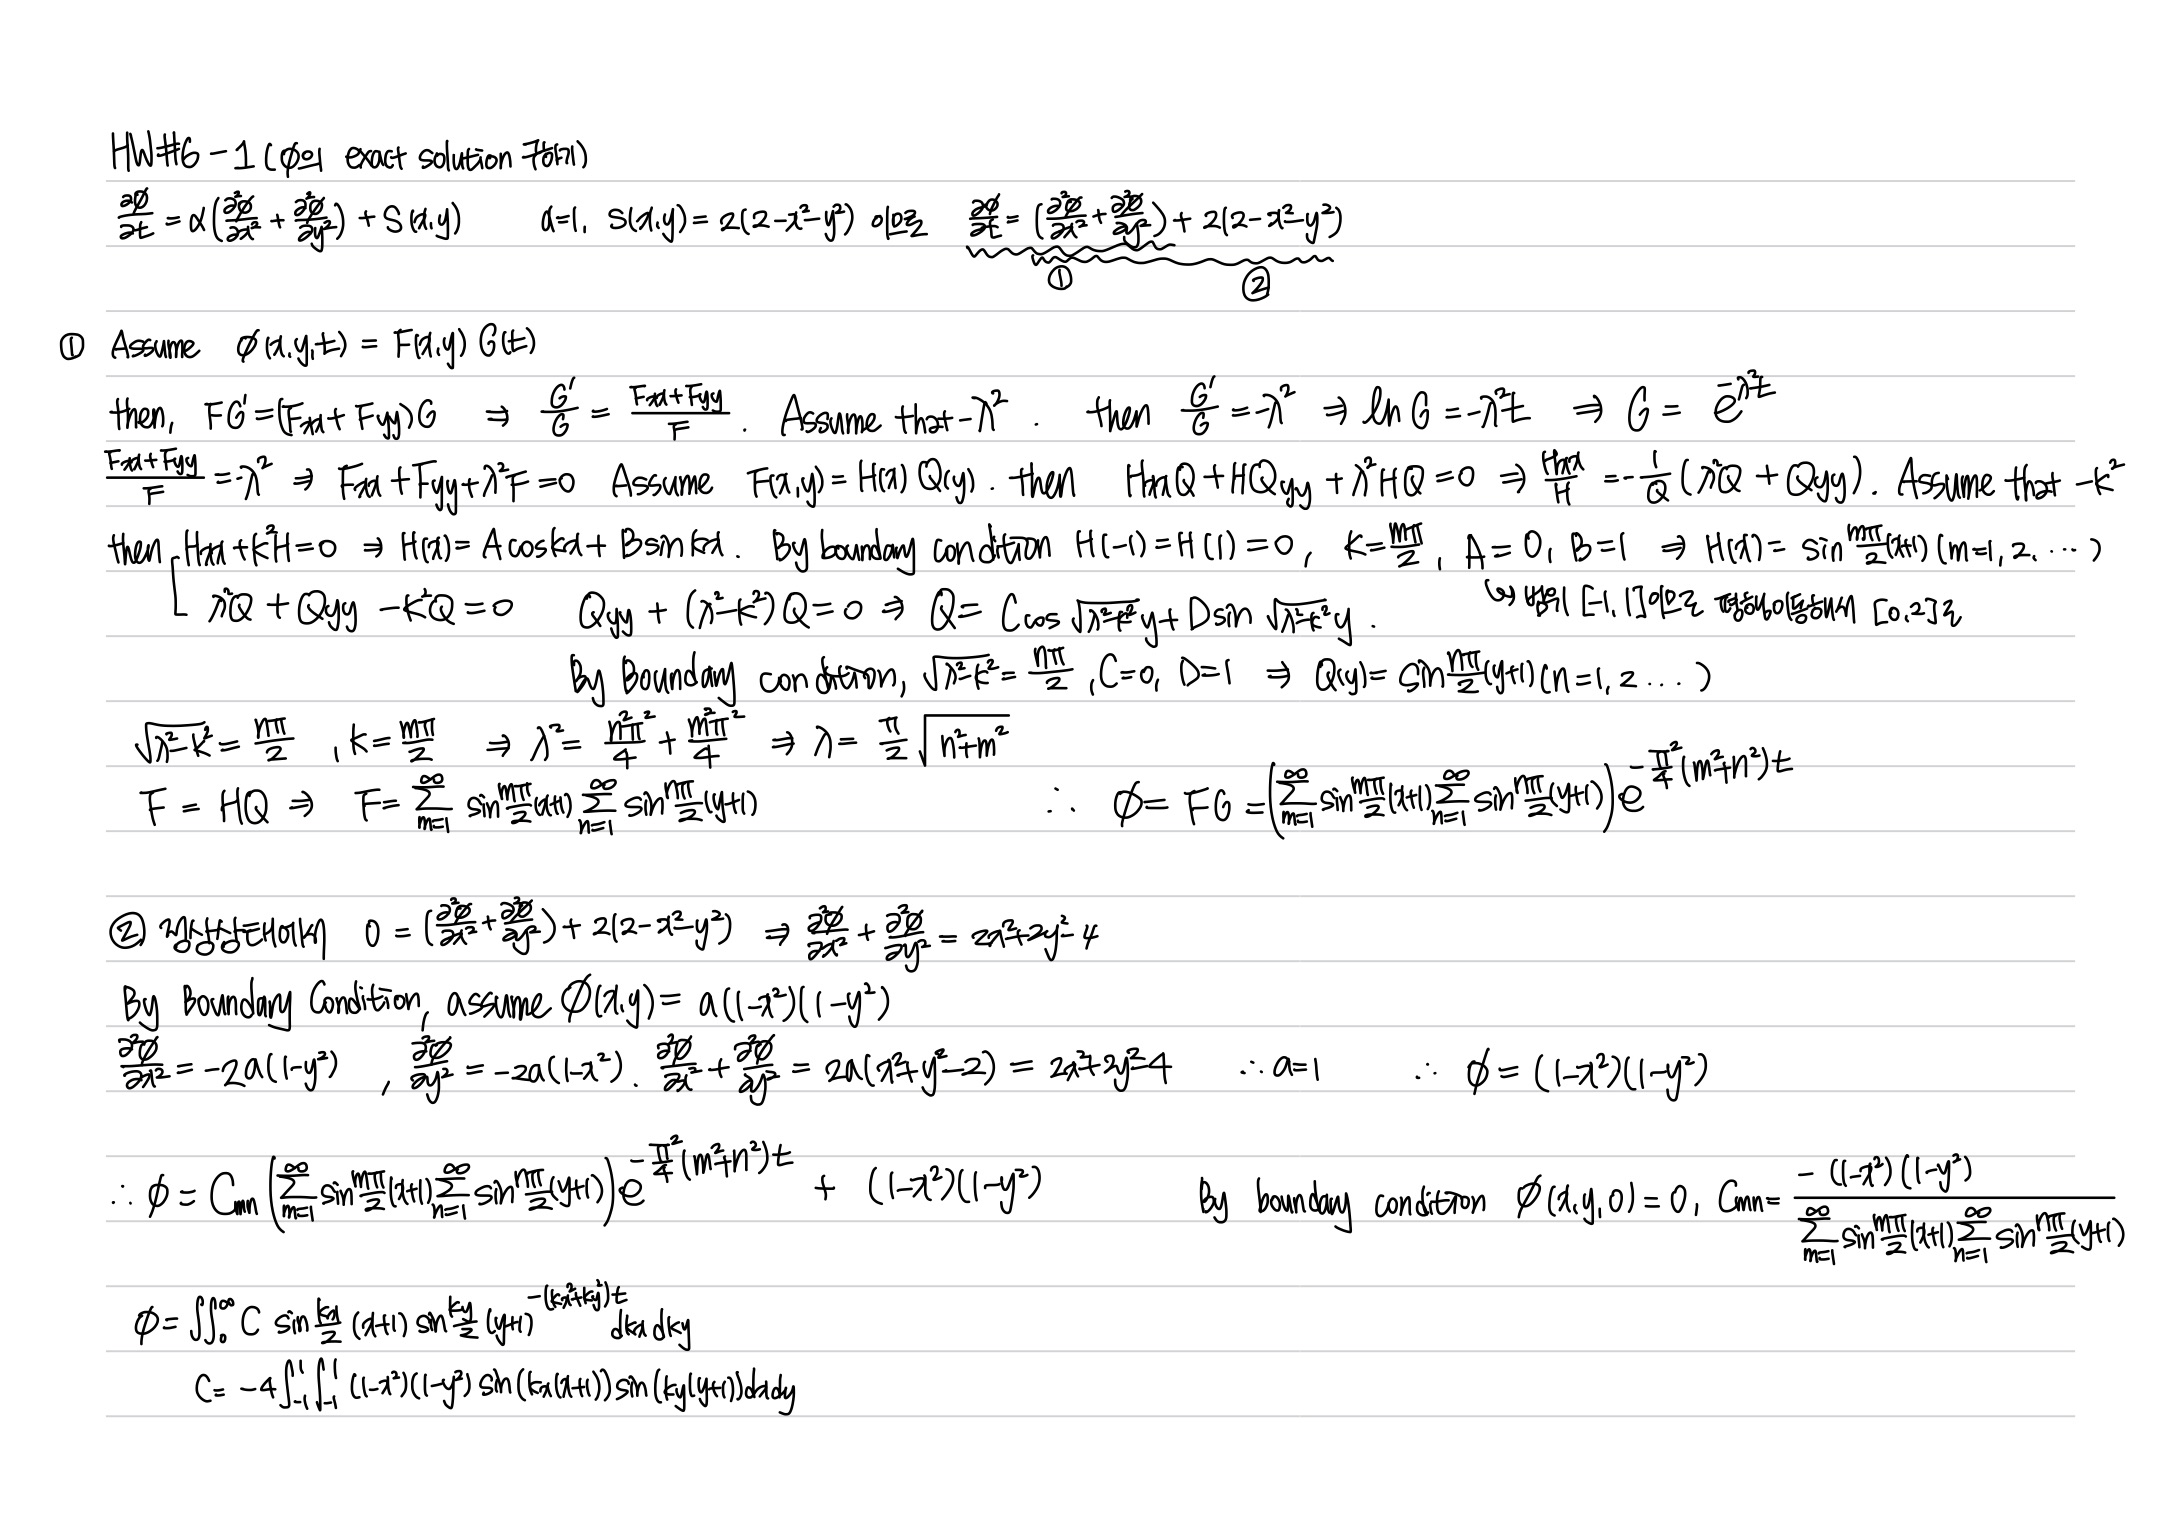 HW#6-1 (ø의 exact solution 구하기)
∂ø/∂t = α(∂²ø/∂x² + ∂²ø/∂y²) + S(x,y) α=1, S(x,y) = 2(2-x²-y²) 이므로 ∂ø/∂t = (∂²ø/∂x² + ∂²ø/∂y²) + 2(2-x²-y²)
① ②
① Assume ø(x,y,t) = F(x,y) G(t)
then, FG' = (Fxx + Fyy)G ⇒ G'/G = (Fxx+Fyy)/F . Assume that -λ² . then G'/G = -λ² ⇒ ln G = -λ²t ⇒ G = e^(-λ²t)
(Fxx+Fyy)/F = -λ² ⇒ Fxx + Fyy + λ²F = 0 Assume F(x,y) = H(x) Q(y) . then HxxQ + HQyy + λ²HQ = 0 ⇒ Hxx/H = -1/Q (λ²Q + Qyy). Assume that -k²
then Hxx + k²H = 0 ⇒ H(x) = A cos kx + B sin kx . By boundary condition H(-1) = H(1) = 0, k = mπ/2 , A = 0, B = 1 ⇒ H(x) = sin mπ/2 (x+1) (m=1, 2, ···)
↳ 범위 [-1, 1]이므로 평행이동해서 [0,2]로
λ²Q + Qyy - k²Q = 0 Qyy + (λ²-k²)Q = 0 ⇒ Q = C cos √(λ²-k²) y + D sin √(λ²-k²) y .
By Boundary condition, √(λ²-k²) = nπ/2 , C=0, D=1 ⇒ Q(y) = sin nπ/2 (y+1) (n=1, 2 ···)
√(λ²-k²) = nπ/2 , k = mπ/2 ⇒ λ² = n²π²/4 + m²π²/4 ⇒ λ = π/2 √(n²+m²)
F = HQ ⇒ F = ∑_{m=1}^{∞} sin mπ/2 (x+1) ∑_{n=1}^{∞} sin nπ/2 (y+1) ∴ ø = FG = (∑_{m=1}^{∞} sin mπ/2 (x+1) ∑_{n=1}^{∞} sin nπ/2 (y+1)) e^(-π²/4 (m²+n²)t)
② 정상상태에서 0 = (∂²ø/∂x² + ∂²ø/∂y²) + 2(2-x²-y²) ⇒ ∂²ø/∂x² + ∂²ø/∂y² = 2x²+2y²-4
By Boundary Condition, assume ø(x,y) = a(1-x²)(1-y²)
∂²ø/∂x² = -2a(1-y²) , ∂²ø/∂y² = -2a(1-x²) . ∂²ø/∂x² + ∂²ø/∂y² = 2a(x²+y²-2) = 2x²+2y²-4 ∴ a=1 ∴ ø = (1-x²)(1-y²)
∴ ø = Cmn (∑_{m=1}^{∞} sin mπ/2 (x+1) ∑_{n=1}^{∞} sin nπ/2 (y+1)) e^(-π²/4 (m²+n²)t) + (1-x²)(1-y²) By boundary condition ø(x,y,0) = 0, Cmn = -(1-x²)(1-y²) / ∑_{m=1}^{∞} sin mπ/2 (x+1) ∑_{n=1}^{∞} sin nπ/2 (y+1)
ø = ∬_0^∞ C sin kx/2 (x+1) sin ky/2 (y+1)^(-(kx²+ky²)t) dkx dky
C = -4 ∫_{-1}^{1} ∫_{-1}^{1} (1-x²)(1-y²) sin(kx(x+1)) sin(ky(y+1)) dxdy